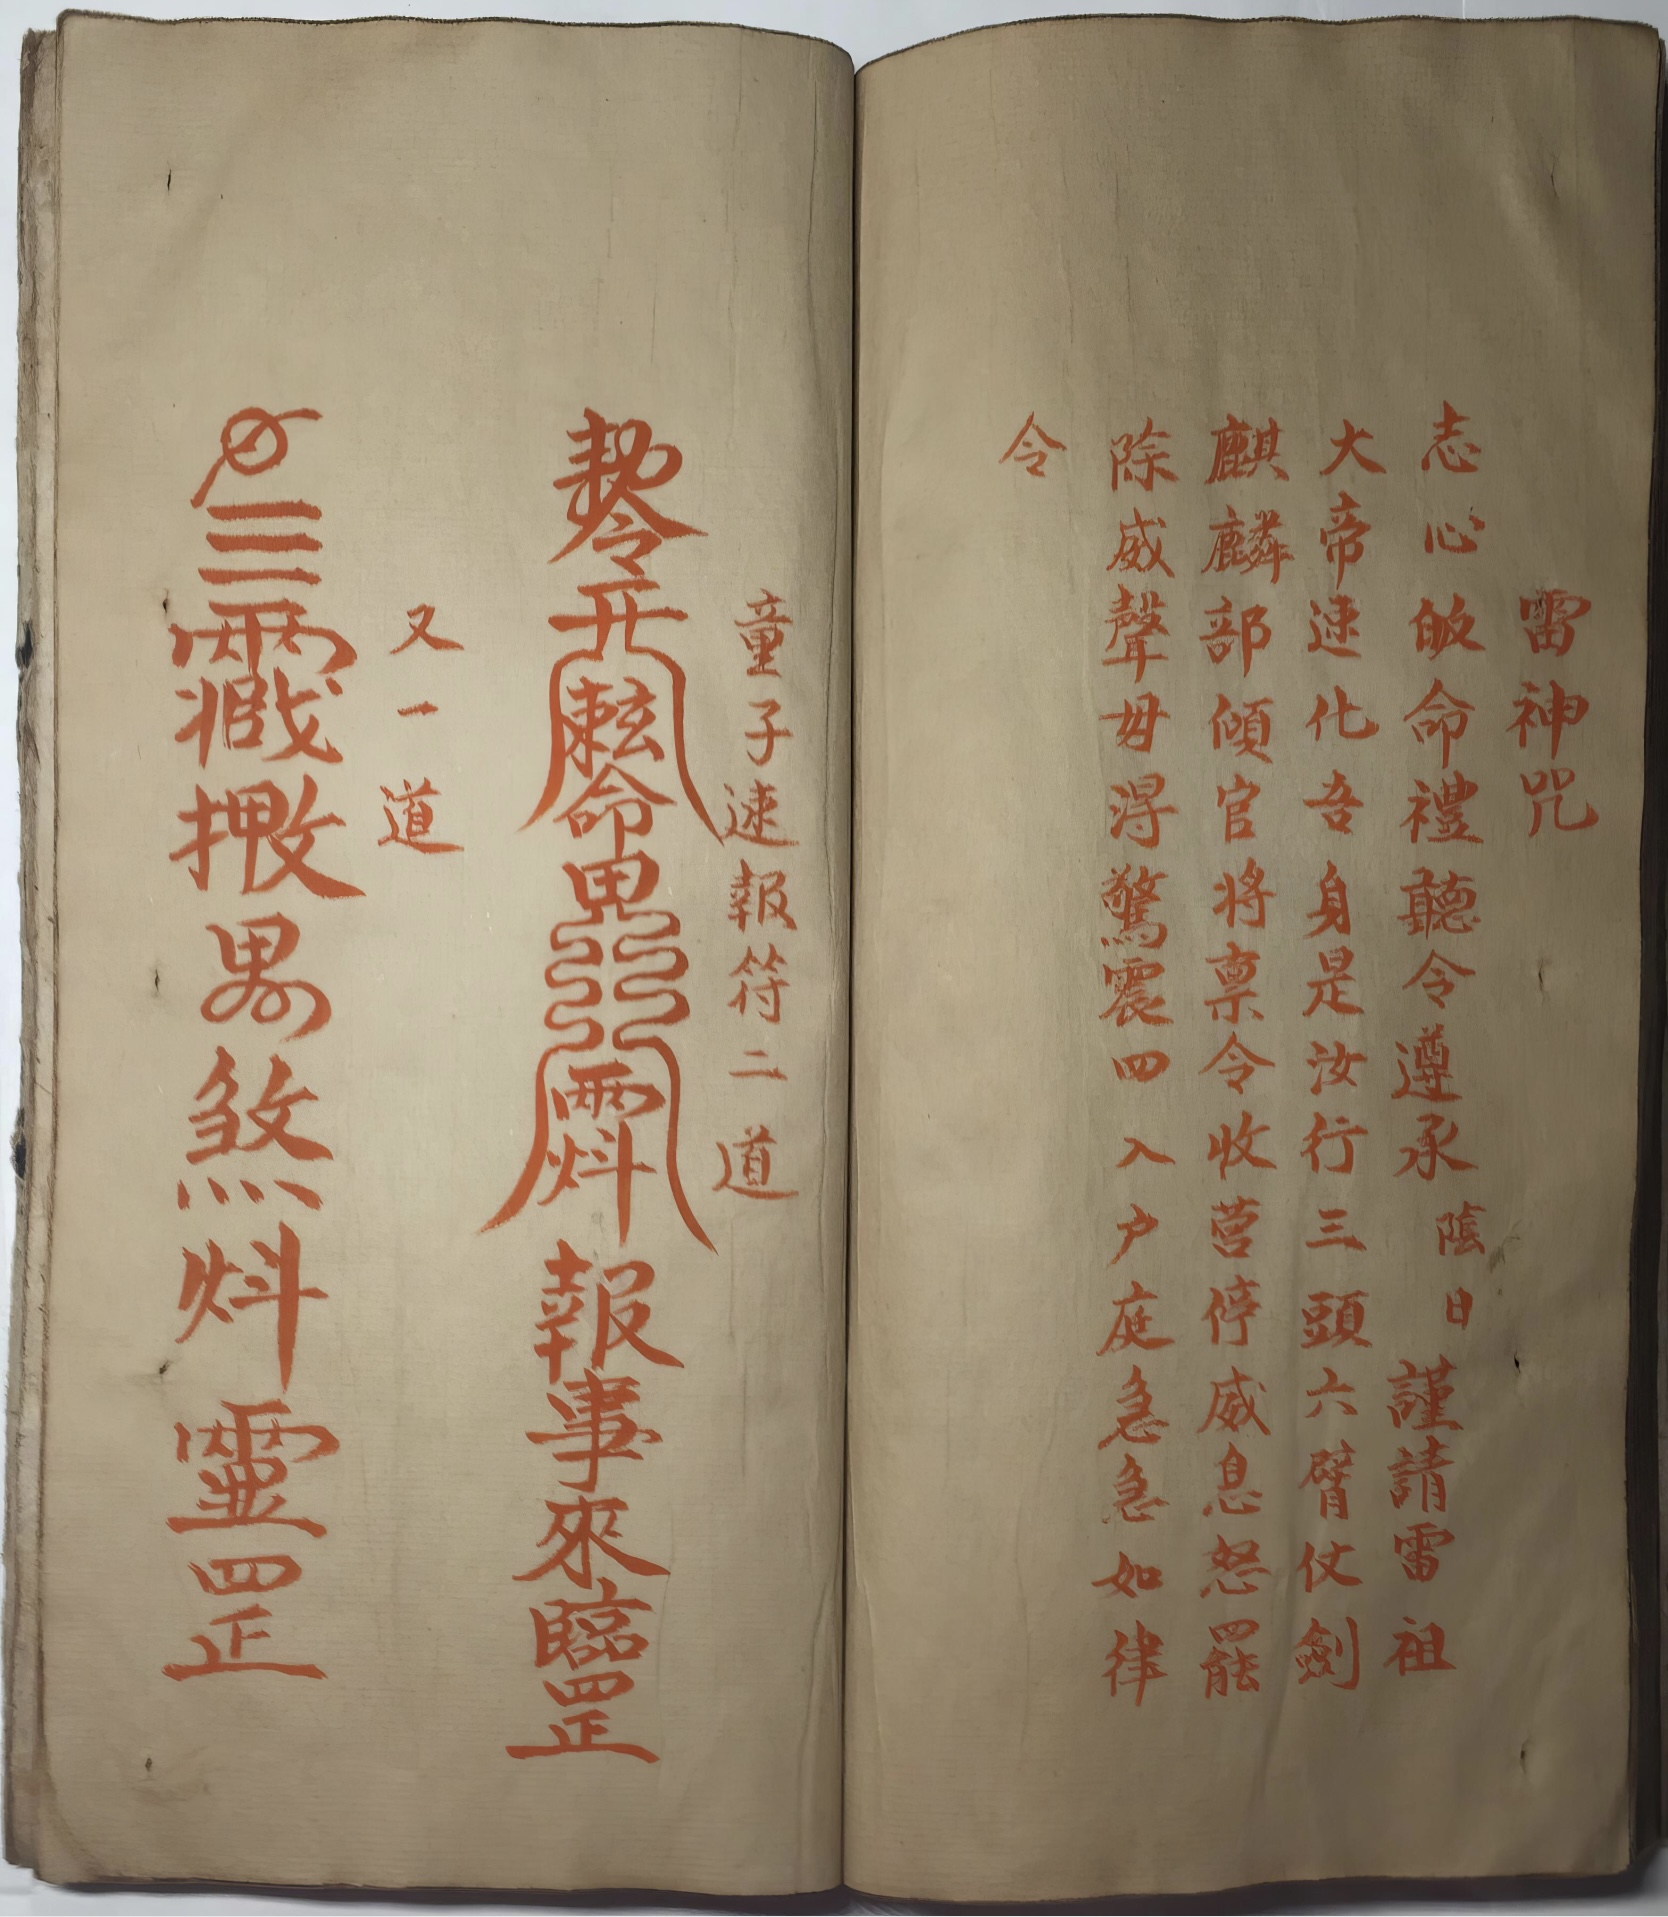 雷神咒
志心皈命禮聽令遵承蔭日謹請雷祖
大帝速化吾身是汝行三頭六臂仗劍
麒麟部傾官將禀令收营停威息怒罷
除威聲毋淂驚震四入户庭急急如律
令
童子速報符二道
令
命
報事來臨罡
又一道
煞
罡